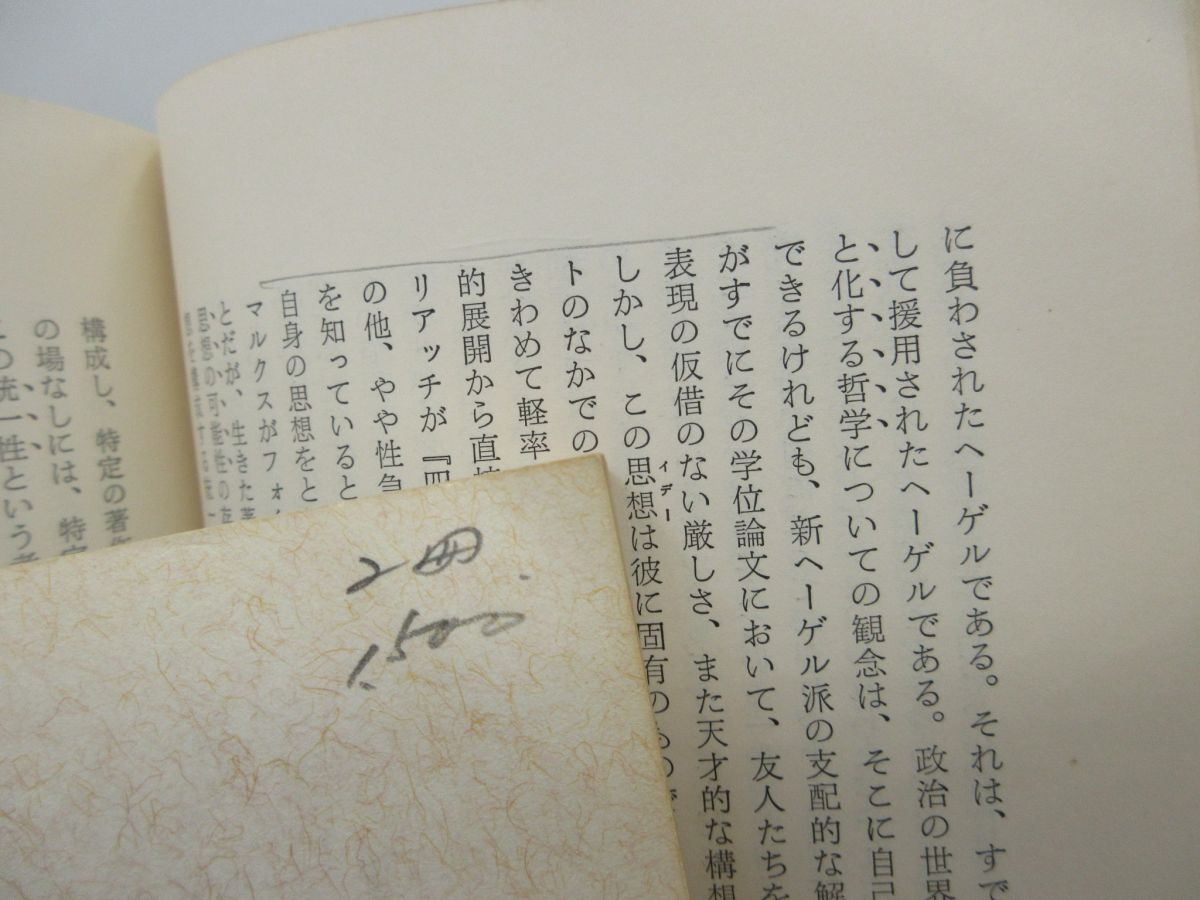 に負わされたヘーゲルである。それは、すで
して援用されたヘーゲルである。政治の世界
と化する哲学についての観念は、そこに自己
できるけれども、新ヘーゲル派の支配的な解
がすでにその学位論文において、友人たちを
表現の仮借のない厳しさ、また天才的な構想
しかし、この思想は彼に固有のもので
イデー
トのなかでの
きわめて軽率
的展開から直接
リアッチが『四
の他、やや性急
を知っていると
自身の思想をと
マルクスがフォイ
とだが、生きた著
思想の可能性の存
構成し、特定の著作
の場なしには、特定
この統一性という考
2冊
1,500